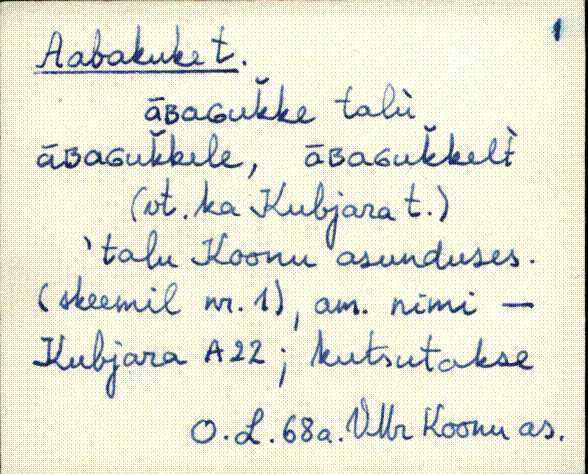 1
Aabakuke t.
āʙᴀɢᴜk̆ke talù
āʙᴀɢᴜk̆kele, āʙᴀɢᴜk̆kelt̀
(vt. ka Kubjara t.)
'talu Koonu asunduses.
(skeemil nr. 1), am. nimi —
Kubjara A 22; kutsutakse
O. L. 68a. VMr Koonu as.